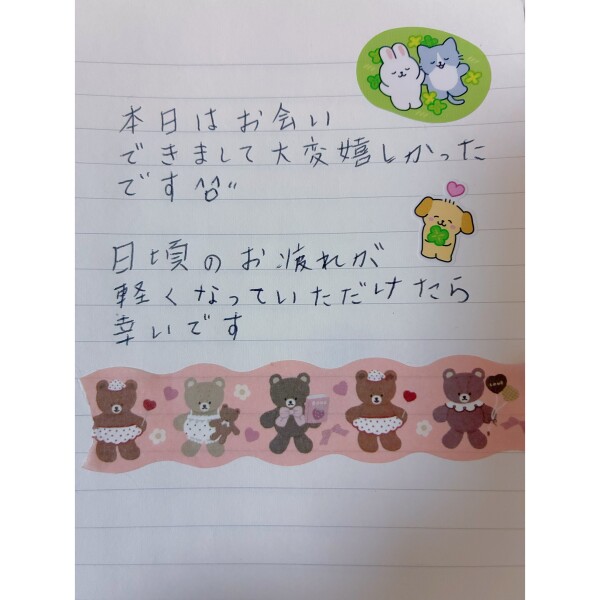 本日はお会い
できまして大変嬉しかった
です^o^"
日頃のお疲れが
軽くなっていただけたら
幸いです